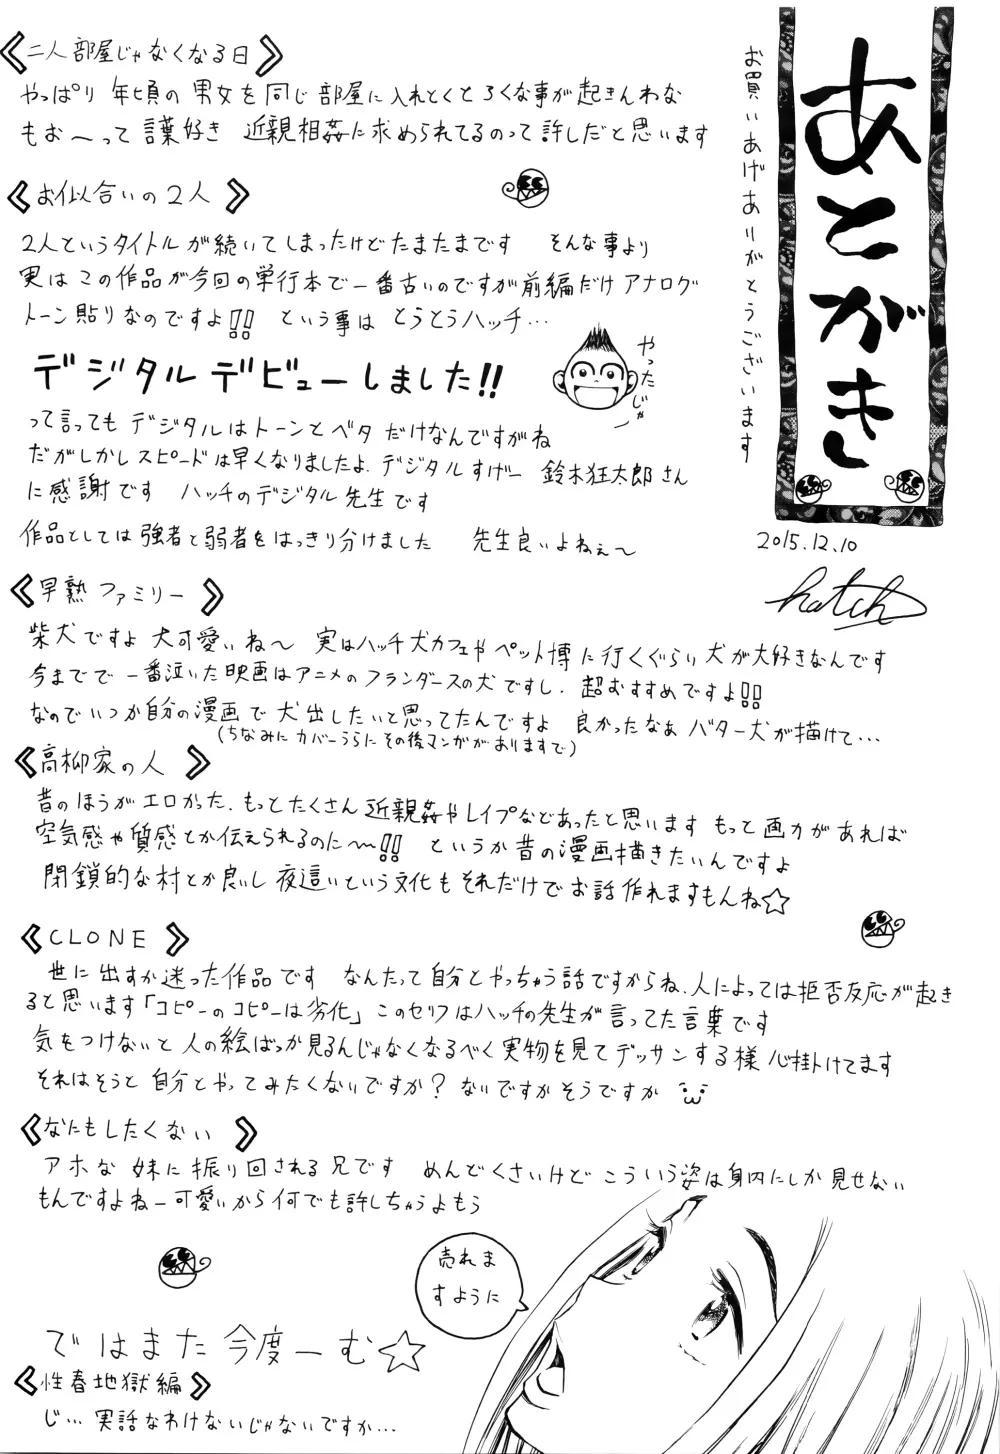 あとがき
お買いあげありがとうございます
2015.12.10
hatch
《二人部屋じゃなくなる日》
やっぱり 年頃の 男女を同じ部屋に入れとくとろくな事が起きんわな
もお〜って言葉好き 近親相姦に求められてるのって許しだと思います
《お似合いの2人》
2人というタイトルが続いてしまったけどたまたまです そんな事より
実は この作品が今回の単行本で一番古いのですが前編だけアナログ
トーン貼りなのですよ!! という事は とうとうハッチ…
デジタルデビューしました!!
やったじゃー
って言っても デジタルはトーンとベタ だけなんですがね
だがしかしスピードは早くなりましたよ.デジタルすげー 鈴木狂太郎さん
に感謝です ハッチのデジタル先生です
作品としては強者と弱者をはっきり分けました 先生良いよねぇ〜
《早熟ファミリー》
柴犬ですよ 犬可愛いね〜 実はハッチ犬カフェやペット博に行くぐらい犬が大好きなんです
今までで一番泣いた映画はアニメのフランダースの犬ですし.超おすすめですよ!!
なのでいつか自分の漫画で犬出したいと思ってたんですよ 良かったなぁ バター犬が描けて…
(ちなみに カバーうらに その後マンガがありますで)
《高柳家の人》
昔のほうがエロかった.もっとたくさん近親姦やレイプなどあったと思います もっと画力があれば
空気感や質感とか伝えられるのに〜!! というか昔の漫画描きたいんですよ
閉鎖的な村とか良いし 夜這いという文化も それだけでお話作れますもんね☆
《CLONE》
世に出すか迷った作品です なんたって自分とやっちゃう話ですからね.人によっては拒否反応が起き
ると思います「コピーのコピーは劣化」このセリフはハッチの先生が言ってた言葉です
気をつけないと人の絵ばっか見るんじゃなくなるべく実物を見てデッサンする様心掛けてます
それはそうと自分とやってみたくないですか?ないですかそうですか
《なにもしたくない》
アホな妹に振り回される兄です めんどくさいけどこういう姿は身内にしか見せない
もんですよねー可愛いから何でも許しちゃうよもう
売れま
すように
ではまた今度ーむ☆
《性春地獄編》
じ…実話なわけないじゃないですか…